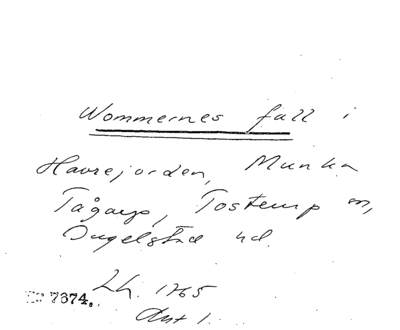 Wommernes fall i
Havrejorden, Munka
Tågarp, Tosterup m,
Ingelstad hd.
Lh. 1765
7674.
Akt 1.